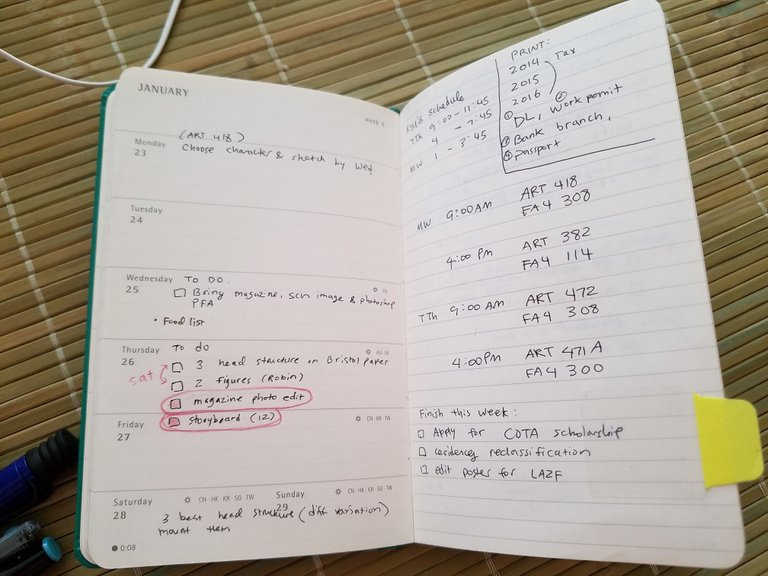 JANUARY
week 4
Monday
23
(ART 418)
Choose character & sketch by Wed
Tuesday
24
Wednesday
25
TO DO.
Bring magazine, scn image & photoshop
PFA
• Food list
Thursday
26
To do
sat
3 head structure on Bristol paper
2 figures (Robin)
magazine photo edit
storyboard (12)
Friday
27
CN·KR·TW
Saturday
28
CN·HK·KR·SG·TW
Sunday
29
CN·HK·KR·SG·TW
3 best head structure (diff variation)
mount them
0:08
schedule
TTh 9:00 - 11:45
4 - 7:45
MW 1 - 3:45
PRINT:
2014
2015
2016
Tax
① DL, ② Work permit
③ Bank branch,
④ passport
MW 9:00 AM ART 418
FA4 308
4:00 PM ART 382
FA4 114
TTh 9:00 AM ART 472
FA4 308
4:00 PM ART 471A
FA4 300
Finish this week:
Apply for COTA scholarship
residency reclassification
edit poster for LAZF